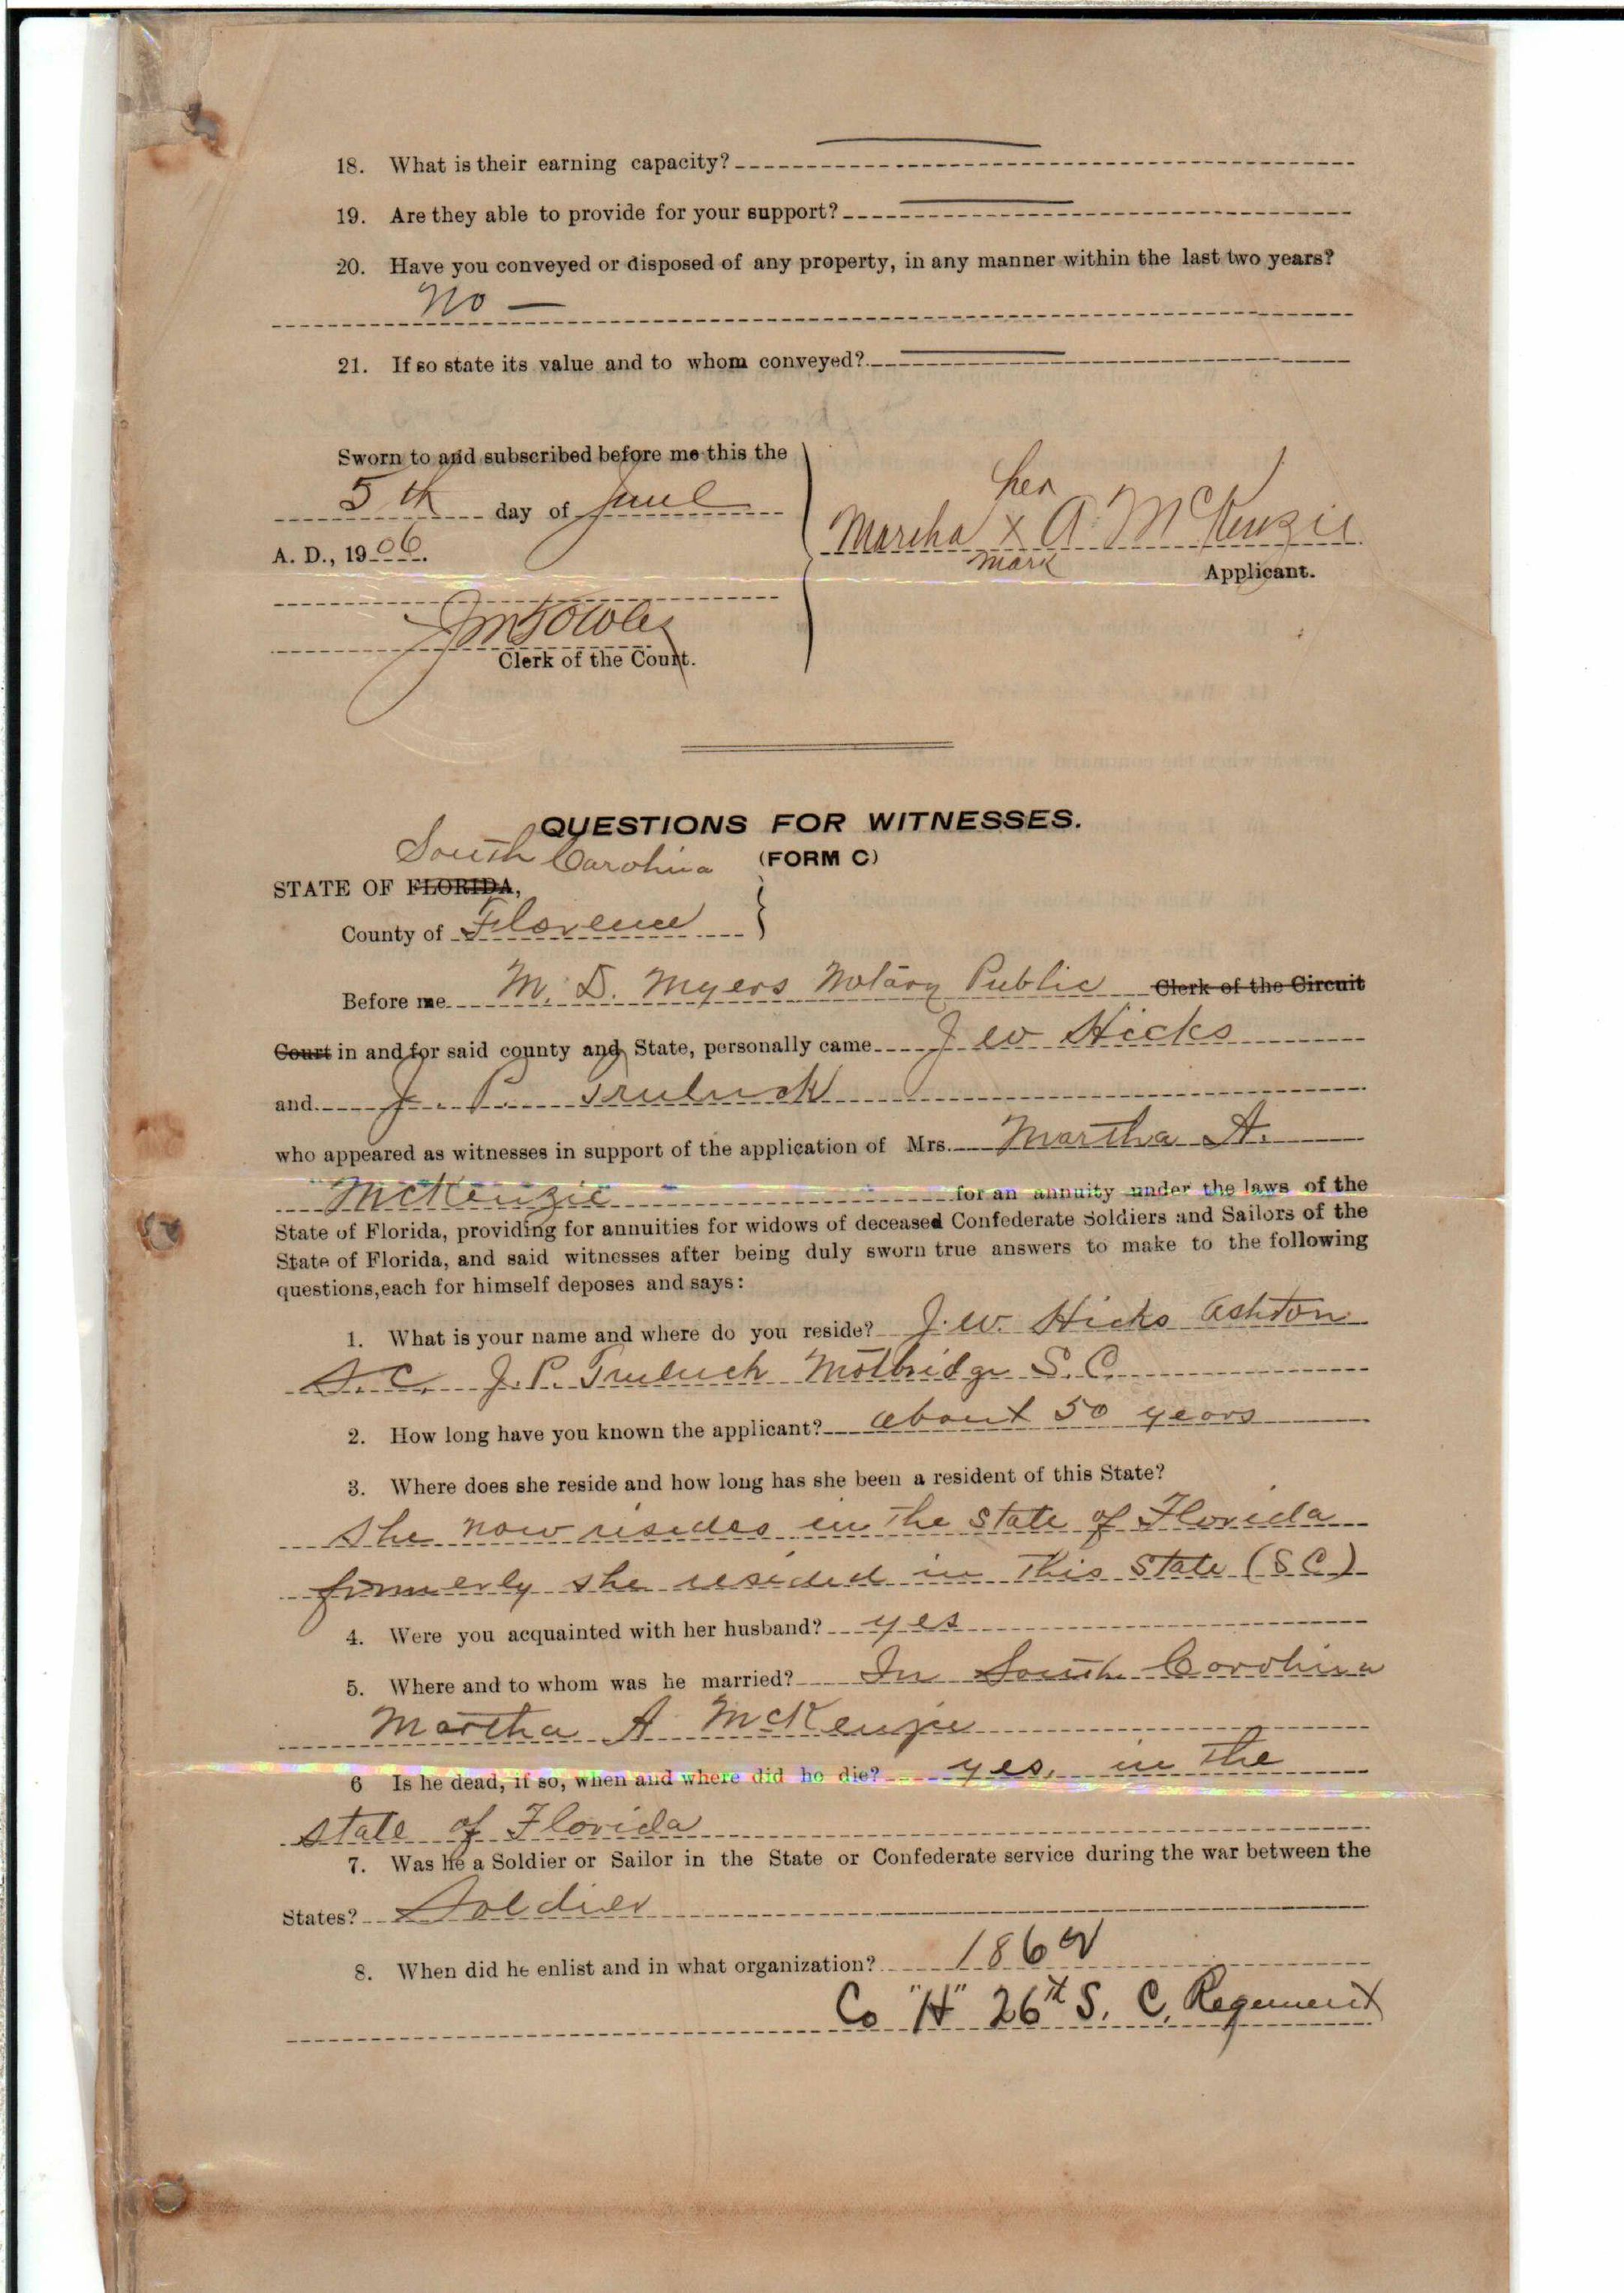 18. What is their earning capacity?
19. Are they able to provide for your support?
20. Have you conveyed or disposed of any property, in any manner within the last two years?
No —
21. If so state its value and to whom conveyed?
Sworn to and subscribed before me this the
5th day of June
A. D., 1906.
her
Martha X A McKenzie
mark
Applicant.
Clerk of the Court.
QUESTIONS FOR WITNESSES.
South Carolina (FORM C)
STATE OF FLORIDA,
County of Florence
Before me M. D. Myers Notary Public Clerk of the Circuit
Court in and for said county and State, personally came J W Hicks
and J. P. Truluck
who appeared as witnesses in support of the application of Mrs. Martha A.
McKenzie for an annuity under the laws of the
State of Florida, providing for annuities for widows of deceased Confederate Soldiers and Sailors of the
State of Florida, and said witnesses after being duly sworn true answers to make to the following
questions, each for himself deposes and says:
1. What is your name and where do you reside? J. W. Hicks Ashton
S. C. J. P. Truluck Motbridge S. C.
2. How long have you known the applicant? about 50 years
3. Where does she reside and how long has she been a resident of this State?
She now resides in the State of Florida
formerly she resided in This State (S C)
4. Were you acquainted with her husband? yes
5. Where and to whom was he married? In South Carolina
Martha A McKenzie
6 Is he dead, if so, when and where did he die? yes, in the
state of Florida
7. Was he a Soldier or Sailor in the State or Confederate service during the war between the
States? Soldier
8. When did he enlist and in what organization? 1862
Co "H" 26th S. C. Regement